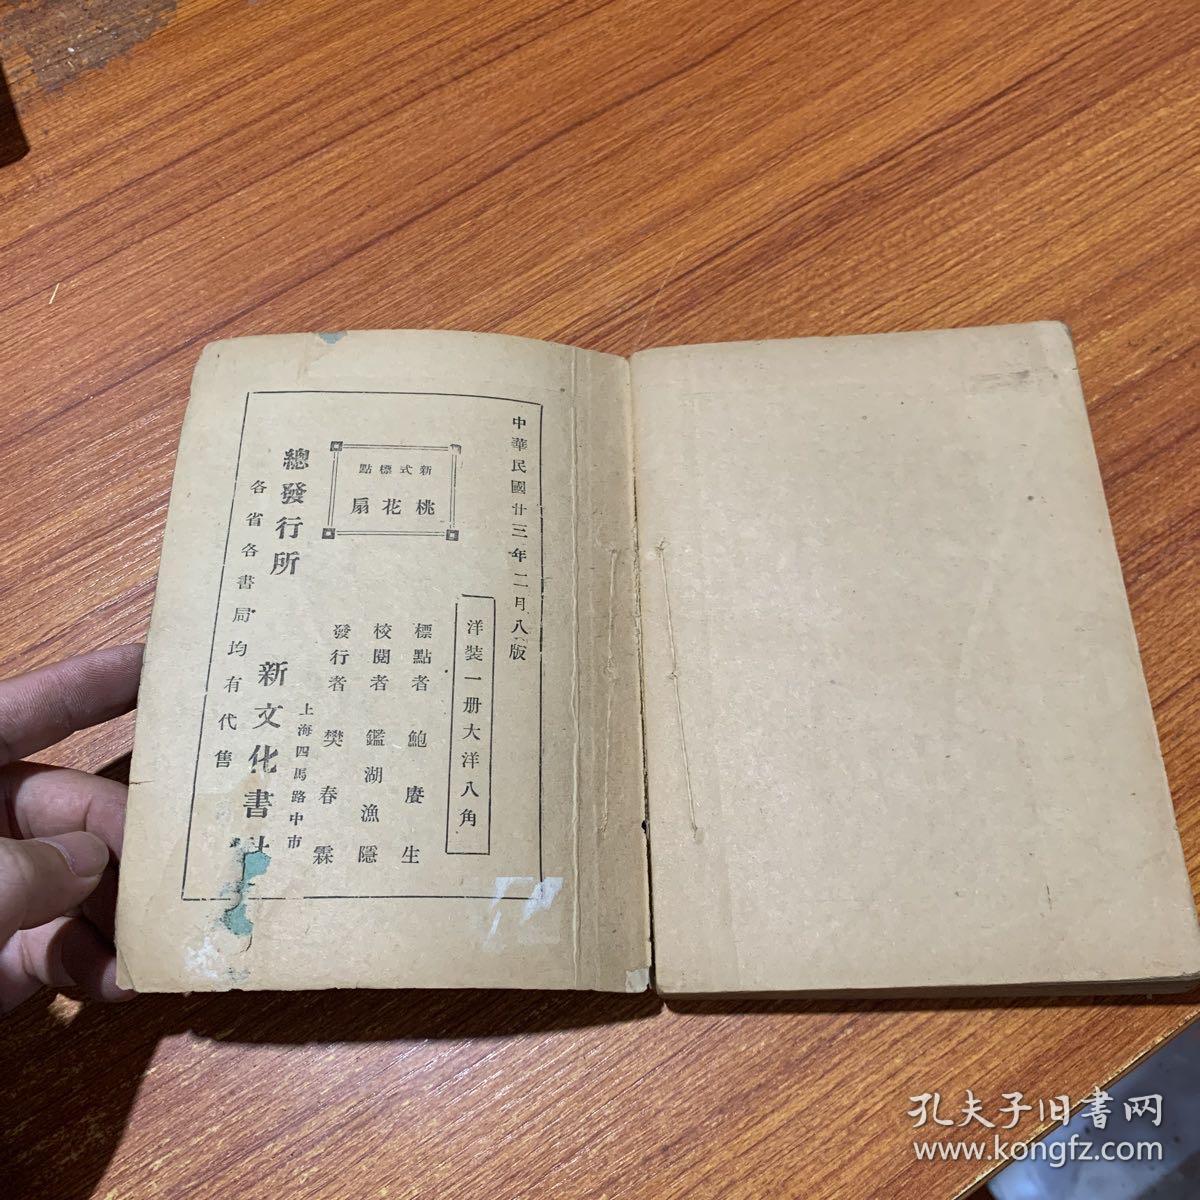 中華民國廿三年二月八版
洋裝一册大洋八角
新式標點
桃花扇
標點者　鮑賡生
校閱者　鑑湖漁隱
發行者　樊春霖
上海四馬路中市
總發行所　新文化書社
各省各書局均有代售
孔夫子旧书网
www.kongfz.com